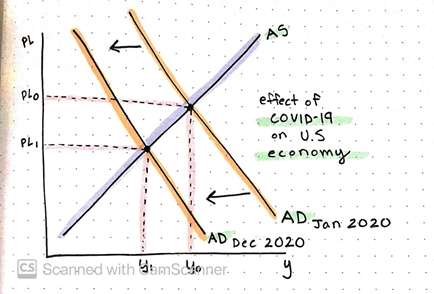 PL
AS
PL0
effect of
COVID-19
on U.S
economy
PL1
AD Jan 2020
AD Dec 2020
y1
y0
y
CS Scanned with CamScanner